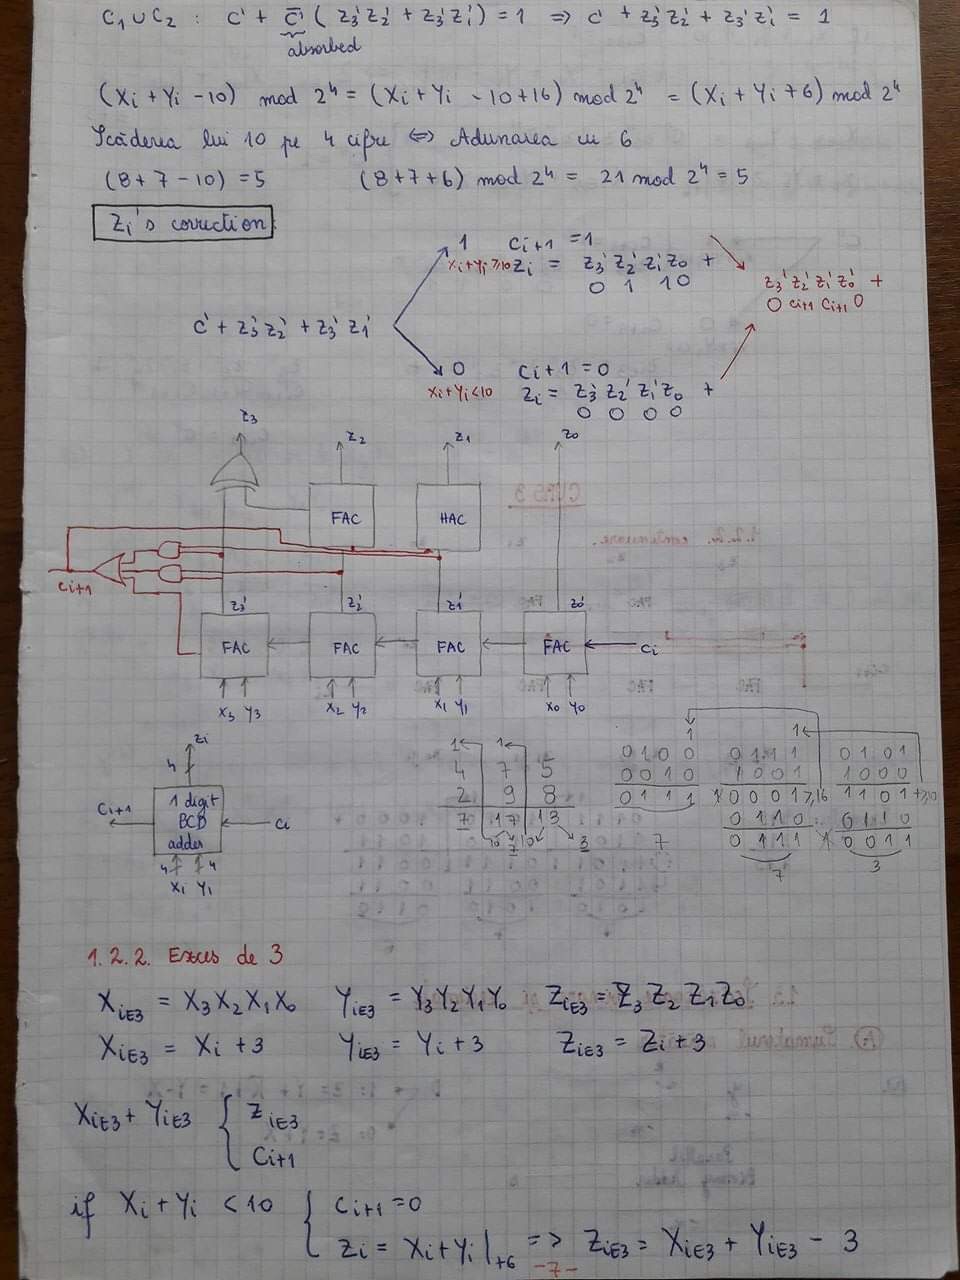 C₁ ∪ C₂ : C' + C̄' ( Z₃'Z₂' + Z₃'Z₁' ) = 1 => C' + Z₃'Z₂' + Z₃'Z₁' = 1
absorbed
(Xi + Yi - 10) mod 2⁴ = (Xi + Yi - 10 + 16) mod 2⁴ = (Xi + Yi + 6) mod 2⁴
Scăderea lui 10 pe 4 cifre <=> Adunarea cu 6
(8+7-10) = 5 (8+7+6) mod 2⁴ = 21 mod 2⁴ = 5
Zi's correction
1 Ci+1 = 1
Xi+Yi ≥ 10 Zi = Z₃' Z₂' Z₁' Z₀ +
0 1 1 0
Z₃' Z₂' Z₁' Z₀' +
0 Ci+1 Ci+1 0
C' + Z₃'Z₂' + Z₃'Z₁'
0 Ci+1 = 0
Xi+Yi < 10 Zi = Z₃' Z₂' Z₁' Z₀ +
0 0 0 0
Z₃ Z₂ Z₁ Z₀
FAC HAC
Ci+1
Z₃' Z₂' Z₁' Z₀'
FAC FAC FAC FAC Ci
X₃ Y₃ X₂ Y₂ X₁ Y₁ X₀ Y₀
Zi
4
Ci+1 1 digit BCD adder Ci
4 4
Xi Yi
1 1
4 7 5
2 9 8
7 17 13
10 7 10 3
1 1
0100 0111 0101
0010 1001 1000
0111 10001 ≥16 1101 ≥10
0110 0110
7 0111 0011
7 3
1.2.2. Exces de 3
XiE3 = X₃X₂X₁X₀ YiE3 = Y₃Y₂Y₁Y₀ ZiE3 = Z₃Z₂Z₁Z₀
XiE3 = Xi + 3 YiE3 = Yi + 3 ZiE3 = Zi + 3
XiE3 + YiE3 { ZiE3
Ci+1
if Xi + Yi < 10 { Ci+1 = 0
Zi = Xi + Yi |+6 => ZiE3 = XiE3 + YiE3 - 3
-7-